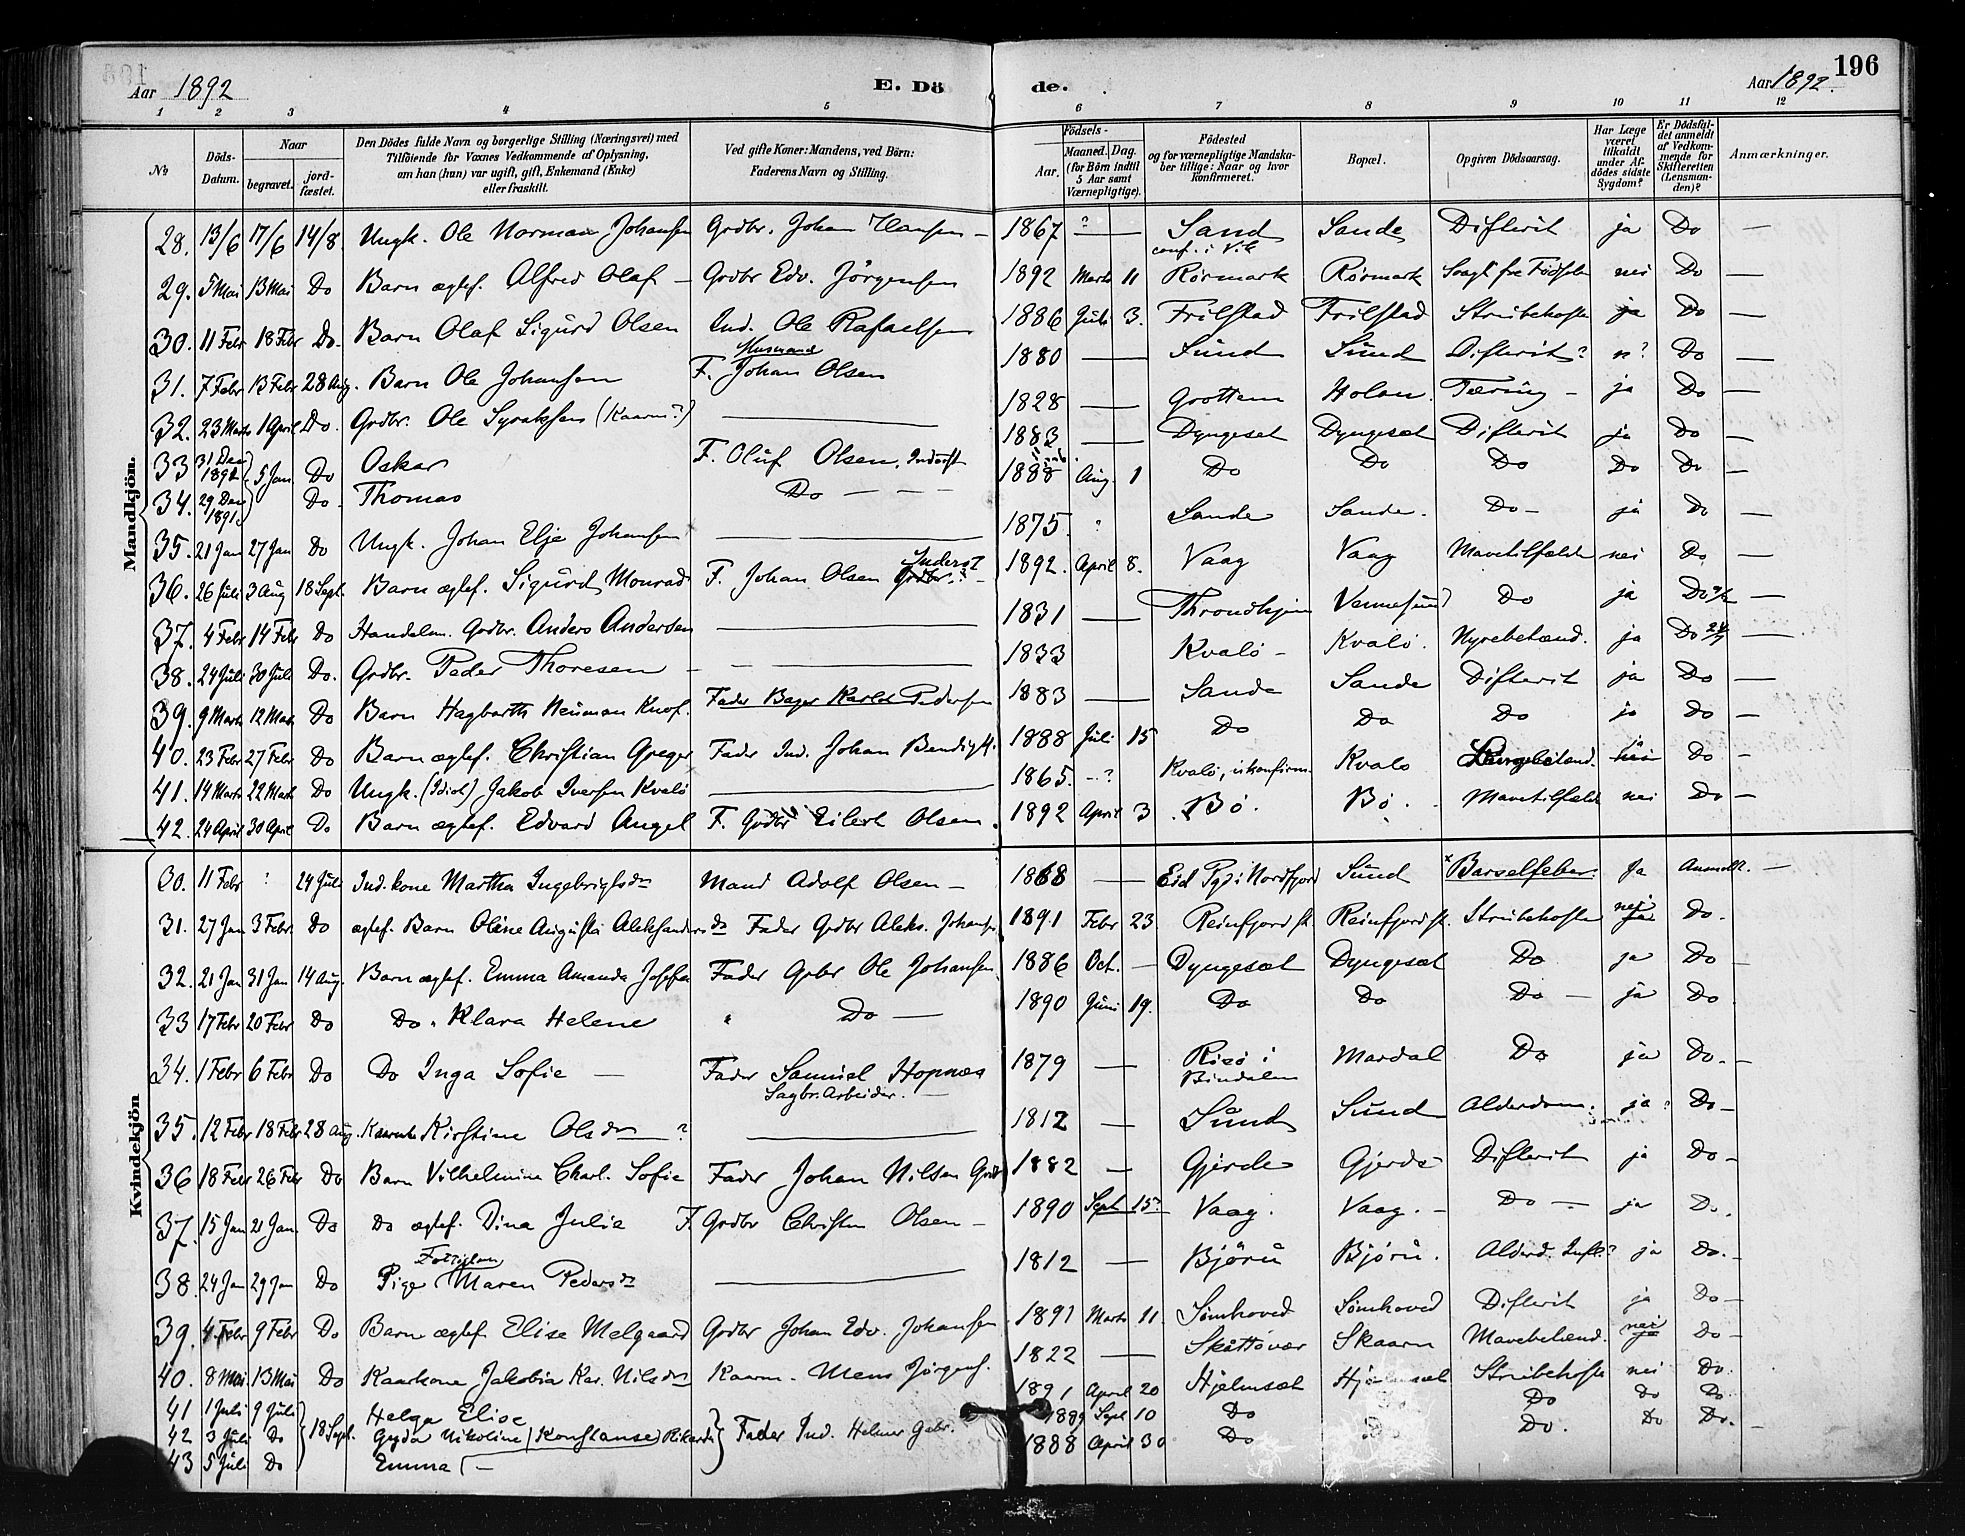 196
Aar 1892 E. Dö de. Aar 1892.
1 2 3 4 5 6 7 8 9 10 11 12
№
Döds-Datum.
Naar
begravet.
jord-fæstet.
Den Dödes fulde Navn og borgerlige Stilling (Næringsvei) med
Tilföiende for Voxnes Vedkommende af Oplysning,
om han (hun) var ugift, gift, Enkemand (Enke)
eller fraskilt.
Ved gifte Koner: Mandens, ved Börn:
Faderens Navn og Stilling.
Födsels-
Aar.
Maaned. Dag.
(for Börn indtil
5 Aar samt
Værnepligtige).
Födested
og for værnepligtige Mandska-
ber tillige: Naar og hvor
konfirmeret.
Bopæl.
Opgiven Dödsaarsag.
Har Læge
været
tilkaldt
under Af-
dödes sidste
Sygdom?
Er Dödsfal-
det anmeldt
af Vedkom-
mende for
Skifteretten
(Lensman-
den)?
Anmærkninger.
Mandkjön.
28. 13/6 17/6 14/8 Ungk. Ole Norman Johansen Grdbr. Johan Hansen — 1867 ? — Sand Sande Difterit ja Do —
conf. i Vik
29. 5 Mai 13 Mai Do Barn ægtef. Alfred Olaf — Grdbr Edv. Jörgensen 1892 Marts 11 Rörmark Rörmark Svagt fra Födselen nei Do —
30. 11 Febr 18 Febr Do. Barn Olaf Sigurd Olsen Ind. Ole Rafaelsen 1886 Juli 3. Frilstad Frilstad Strubehoste ja Do —
Husmand
31. 7 Febr 13 Febr 28 Aug. Barn Ole Johansen F. Johan Olsen 1880 — Sund Sund Difterit? n? Do —
32. 23 Marts 1 April Do. Grdbr. Ole Syraksen (Kaarm?) — 1828 — Grottem Holan Tæring — ja Do —
33 31 Dec 1892 5 Jan Do Oskar F. Oluf Olsen, Inderst 1883 — Dyngeset Dyngeset Difterit ja Do —
34. 29 Dec 1891 Do. Thomas Do — — — 1888 Aug. 1 Do Do Do Do Do —
35. 21 Jan 27 Jan Do Ungk. Johan Elje Johansen — 1875. ? Sande Sande. Do — ja Do —
Inderst
36. 26 Juli 3 Aug 18 Sept. Barn ægtef. Sigurd Monrad F. Johan Olsen Grdbr.? 1892. April 8. Vaag Vaag Mavetilfælde nei Do —
37. 4 Febr 14 Febr Do Handelsm. Grdbr. Anders Andersen — 1831 — Throndhjem Vennesund Do ja Do —
38. 24 Juli 30 Juli Do. Grdbr. Peder Thoresen — 1833 Kvalö — Kvalö. Nyrebetænd. ja Do —
39. 9 Marts 12 Marts Do Barn Hagbarth Neuman Knof. Fader Bager Karlot Pedersen 1883 — Sande Sande Difterit ja Do —
40. 23 Febr 27 Febr Do Barn ægtef. Christian Greger Fader Ind. Johan Bendigts. 1888 Juli 15 Do Do Do ja Do —
41. 14 Marts 22 Marts Do Ungk. (Idiot) Jakob Iversen Kvalö — 1865. —? Kvalö, ukonfirm. Kvalö Do —
42. 24 April 30 April Do Barn ægtef. Edvard Angel F. Grdbr Eilert Olsen. 1892 April 3 Bö. Bö. Mavetilfælde nei Do —
Kvindekjön
30. 11 Febr ? 24 Juli Ind. kone Martha Ingebrigtsdr Mand Adolf Olsen — 1868 — Eid Pgd i Nordfjord Sund × Barselfeber Ja Anmeldt. —
31. 27 Jan 3 Febr. Do ægtef. Barn Oline Augusta Aleksandersdr Fader Grdbr Aleks. Johansen 1891 Febr 23. Reinfjord sk. Reinfjord sk. Strubehoste nei ja Do.
32. 21 Jan 31 Jan 14 Aug. Barn ægtef. Emma Amanda Josefa Fader Grbr Ole Johansen 1886 Oct. — Dyngeset Dyngeset Do ja Do —
33 17 Febr 20 Febr Do Do. Klara Helene " Do — 1890 Juni 19. Do Do Do — ja Do
34. 1 Febr 6 Febr Do Do Inga Sofie — Fader Samuel Hopnes 1879 — Risö i Mardal Do ja Do. —
Sagbr. Arbeider. — Bindalen
35. 12 Febr 18 Febr 28 Aug. Kirstine Olsdr ? — 1812 — Sund Sund Alderdom. ja? Do —
36 18 Febr 26 Febr Do Barn Vilhelmine Charl. Sofie Fader Johan Nilsen Grdb 1882 — Gjerde Gjerde Difterit ja Do —
37. 15 Jan 21 Jan. Do Do ægtef. Dina Julie F. Grdbr Christen Olsen — 1890 Sept 15? Vaag. Vaag. — Do — ja Do.
38. 24 Jan 29 Jan Do Pige Maren Pedersdr — 1812 — Björu Björu. Alderd. Infl.? ja Do. —
39. 4 Febr 9 Febr Do Barn ægtef. Elise Melgaard Grdbr Johan Edv. Johansen 1891 Marts 11. Sömhoved Sömhoved Difterit ja Do —
40. 8 Mai 13 Mai Do Kaarkone Jakobia Kar. Nilsdr Kaarm. Mons Jörgens. 1822 — Skåttövær Skaarn Mavebetænd. nei ja Do —
41 1 Juli 9 Juli Helga Elise 1891 April 20 Hjelmset Hjelmset Strubehoste nei Do.
42 3 Juli Do 18 Sept. Gyda Nikoline (Konstanse) Rikarda Fader Ind. Helmer Gabr. 1889 Sept 10 Do Do Do Do
43 5 Juli Do Emma — 1888 April 30 Do Do Do. Do Do. —